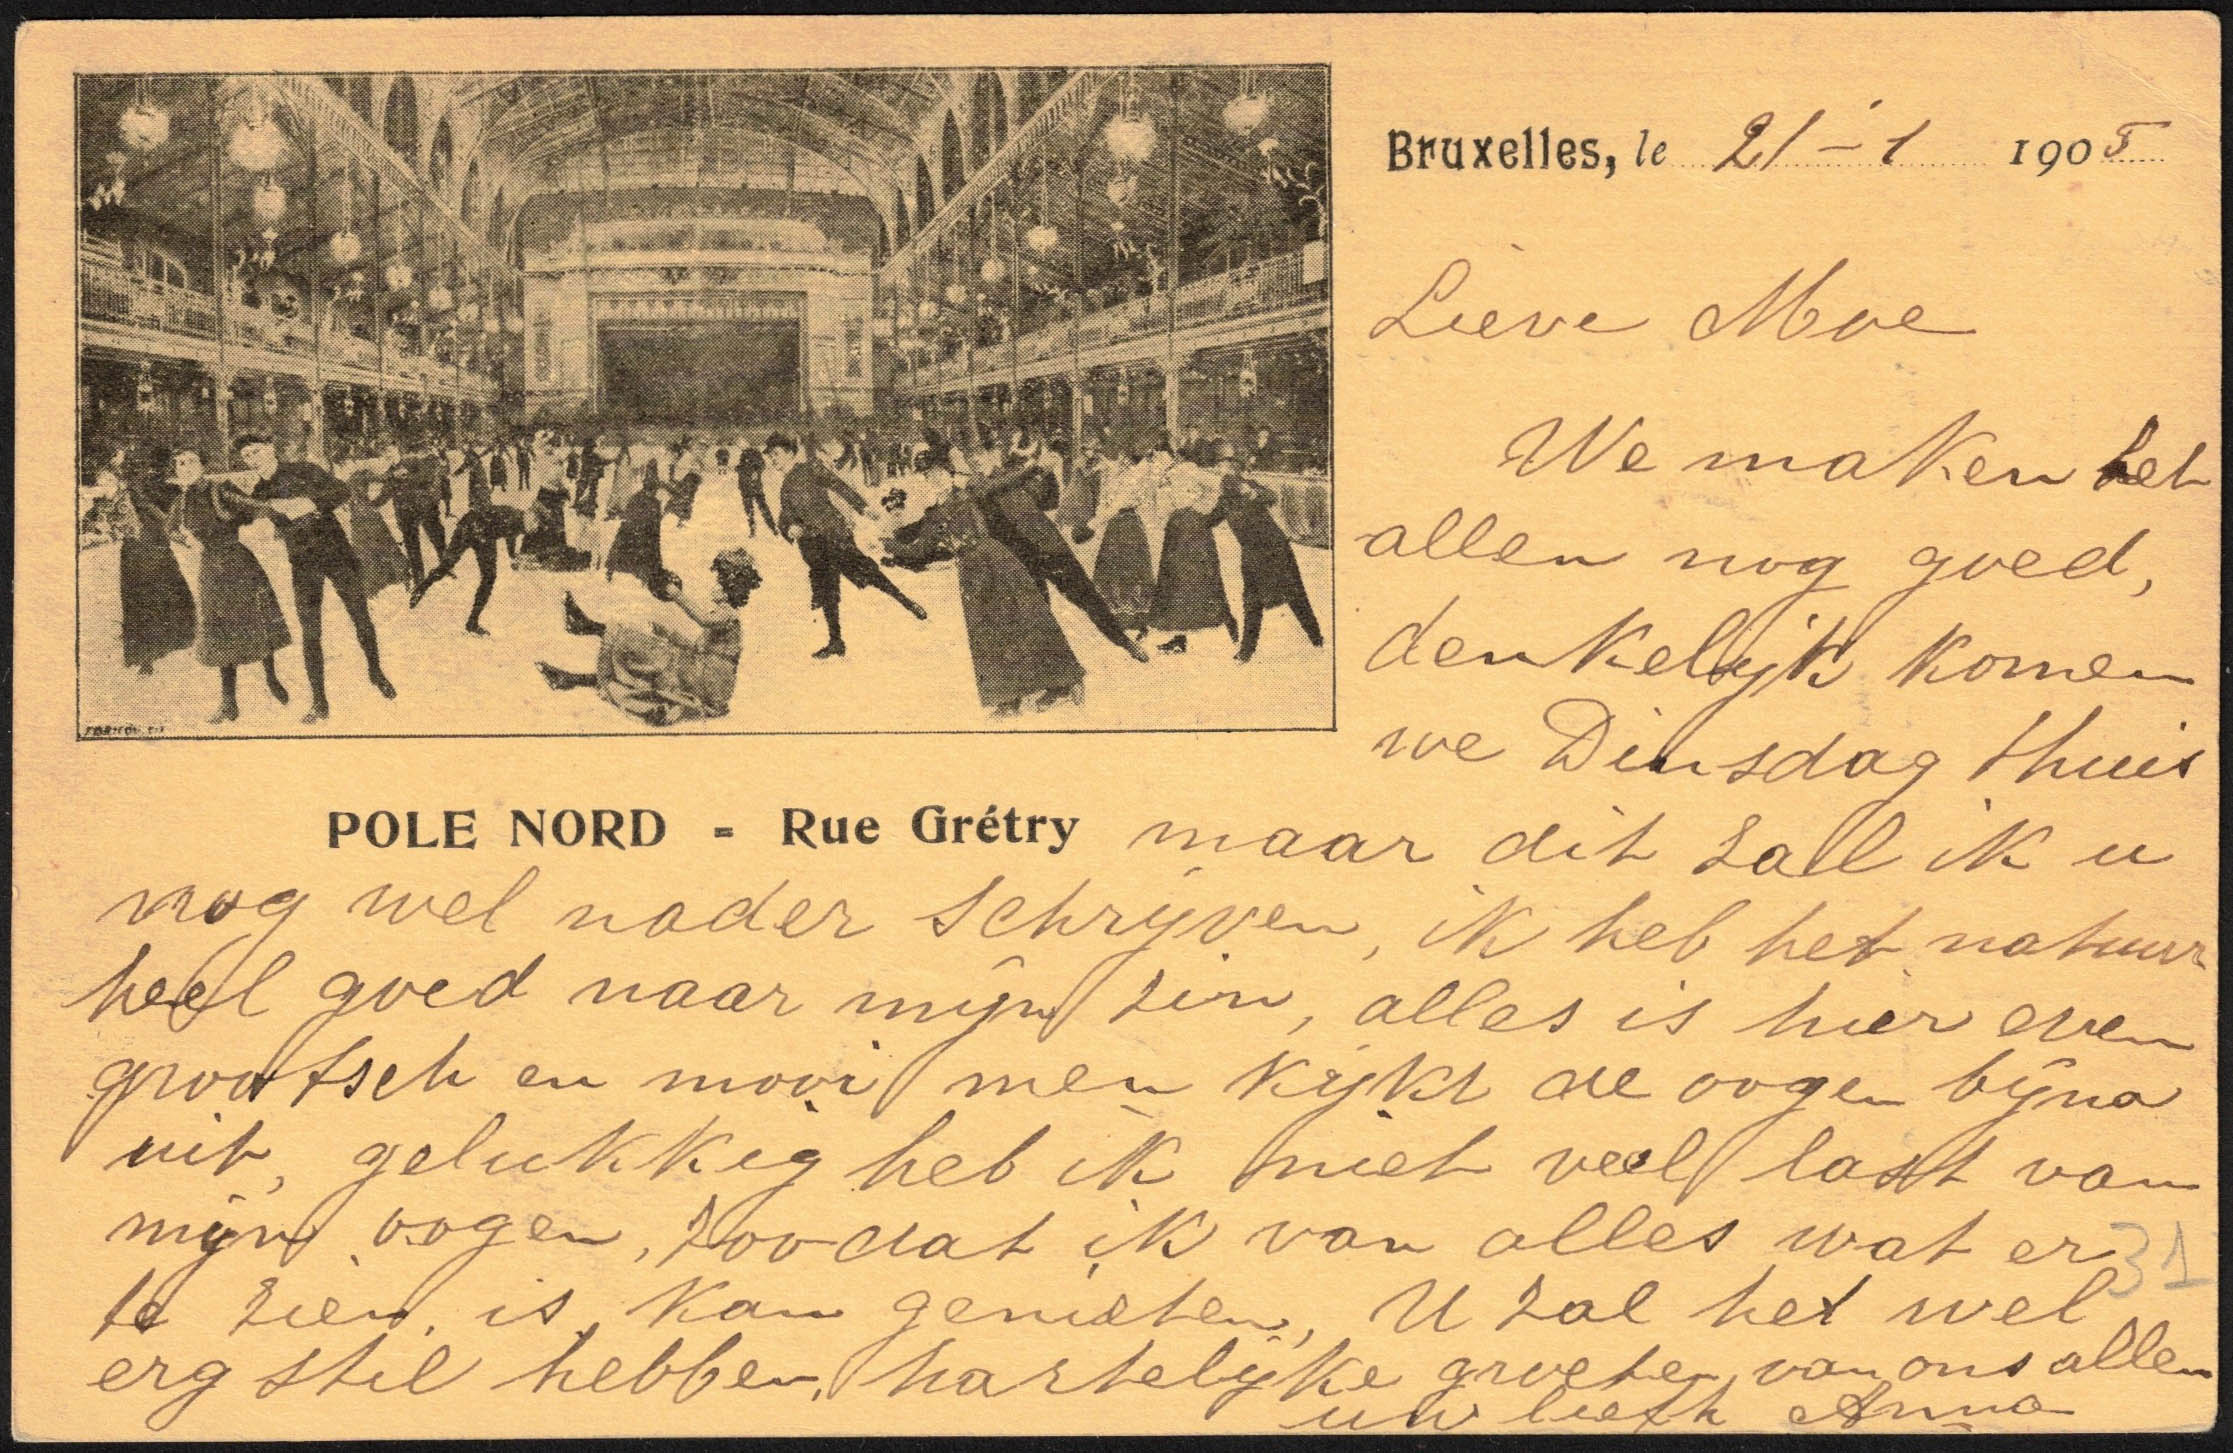 Bruxelles, le 21 - 1 1905
Lieve Moe
We maken het
allen nog goed,
denkelijk komen
we Dinsdag thuis
POLE NORD - Rue Grétry
maar dit zal ik u
nog wel nader schrijven, ik heb het natuur
heel goed naar mijn zin, alles is hier even
grootsch en mooi men kijkt de oogen bijna
uit, gelukkig heb ik niet veel last van
mijn oogen, zoodat ik van alles wat er
te zien is kan genieten, U zal het wel
erg stil hebben, hartelijke groeten van ons allen
uw liefh Anna
31